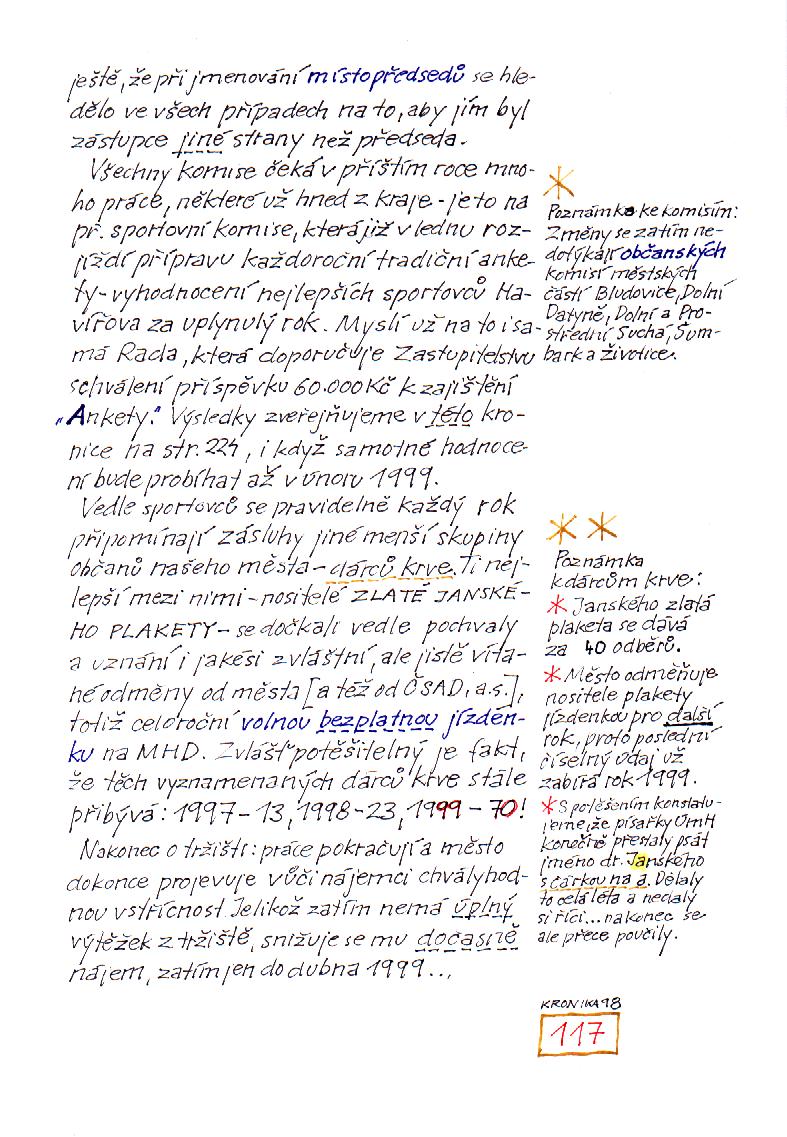 ještě, že při jmenování místopředsedů se hle-
dělo ve všech případech na to, aby jím byl
zástupce jiné strany než předseda.
Všechny komise čeká v příštím roce mno-
ho práce, některé už hned z kraje - je to na
př. sportovní komise, která již v lednu roz-
jíždí přípravu každoroční tradiční anke-
ty - vyhodnocení nejlepších sportovců Ha-
vířova za uplynulý rok. Myslí už na to i sa-
má Rada, která doporučuje Zastupitelstvu
schválení příspěvku 60.000 Kč k zajištění
„Ankety." Výsledky zveřejňujeme v této kro-
nice na str. 224, i když samotné hodnoce-
ní bude probíhat až v únoru 1999.
Vedle sportovců se pravidelně každý rok
připomínají zásluhy jiné menší skupiny
občanů našeho města - dárců krve. Ti nej-
lepší mezi nimi - nositelé ZLATÉ JANSKÉ-
HO PLAKETY - se dočkali vedle pochvaly
a uznání i jakési zvláštní, ale jistě víta-
né odměny od města [a též od ČSAD, a.s.],
totiž celoroční volnou bezplatnou jízden-
ku na MHD. Zvlášť potěšitelný je fakt,
že těch vyznamenaných dárců krve stále
přibývá: 1997 - 13, 1998 - 23, 1999 - 70!
Nakonec o tržišti: práce pokračují a město
dokonce projevuje vůči nájemci chvályhod-
nou vstřícnost. Jelikož zatím nemá úplný
výtěžek z tržiště, snižuje se mu dočasně
nájem, zatím jen do dubna 1999...
*
Poznámka ke komisím:
Změny se zatím ne-
dotýkají občanských
komisí městských
částí Bludovice, Dolní
Datyně, Dolní a Pro-
střední Suchá, Šum-
bark a Životice.
* *
Poznámka
k dárcům krve:
* Janského zlatá
plaketa se dává
za 40 odběrů.
* Město odměňuje
nositele plakety
jízdenkou pro další
rok, proto poslední
číselný údaj už
zabírá rok 1999.
* S potěšením konstatu-
jeme, že písařky ÚMH
konečně přestaly psát
jméno dr. Janského
s čárkou na á. Dělaly
to celá léta a nedaly
si říci... nakonec se
ale přece poučily.
KRONIKA 98
117